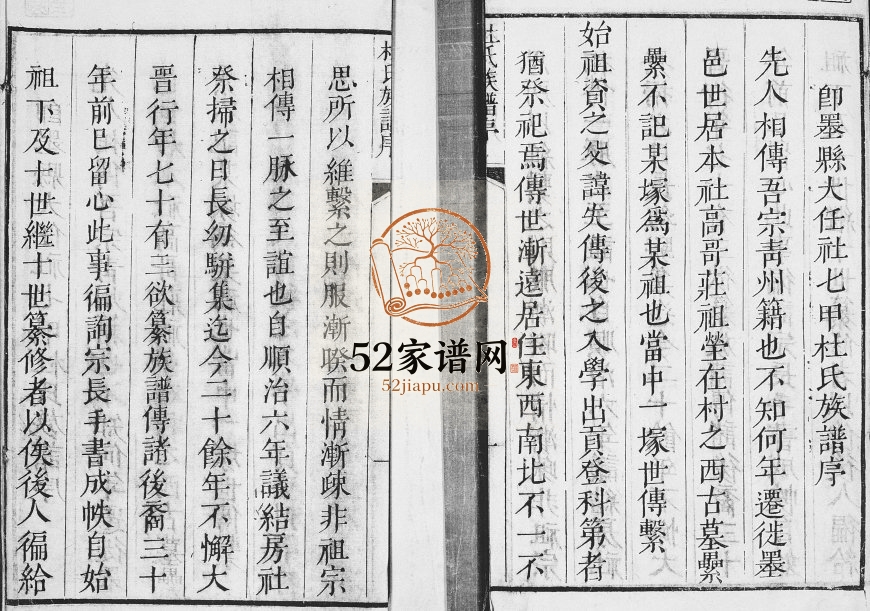 卽墨縣大任社七甲杜氏族譜序
先人相傳吾宗靑州籍也不知何年遷徙墨
邑世居本社高哥莊祖塋在村之西古墓纍
纍不記某塚爲某祖也當中一塚世傳繫
始祖資之父諱失傳後之入學出貢登科第者
猶祭祀焉傳世漸遠居住東西南北不一不
杜氏族譜序
杜氏族譜序
思所以維繫之則服漸暌而情漸疎非祖宗
相傳一脉之至誼也自順治六年議結房社
祭掃之日長幼駢集迄今二十餘年不懈大
晋行年七十有三欲纂族譜傳諸後裔三十
年前已留心此事徧詢宗長手書成帙自始
祖下及十世繼十世纂修者以俟後人徧給
52家谱网
52jiapu.com